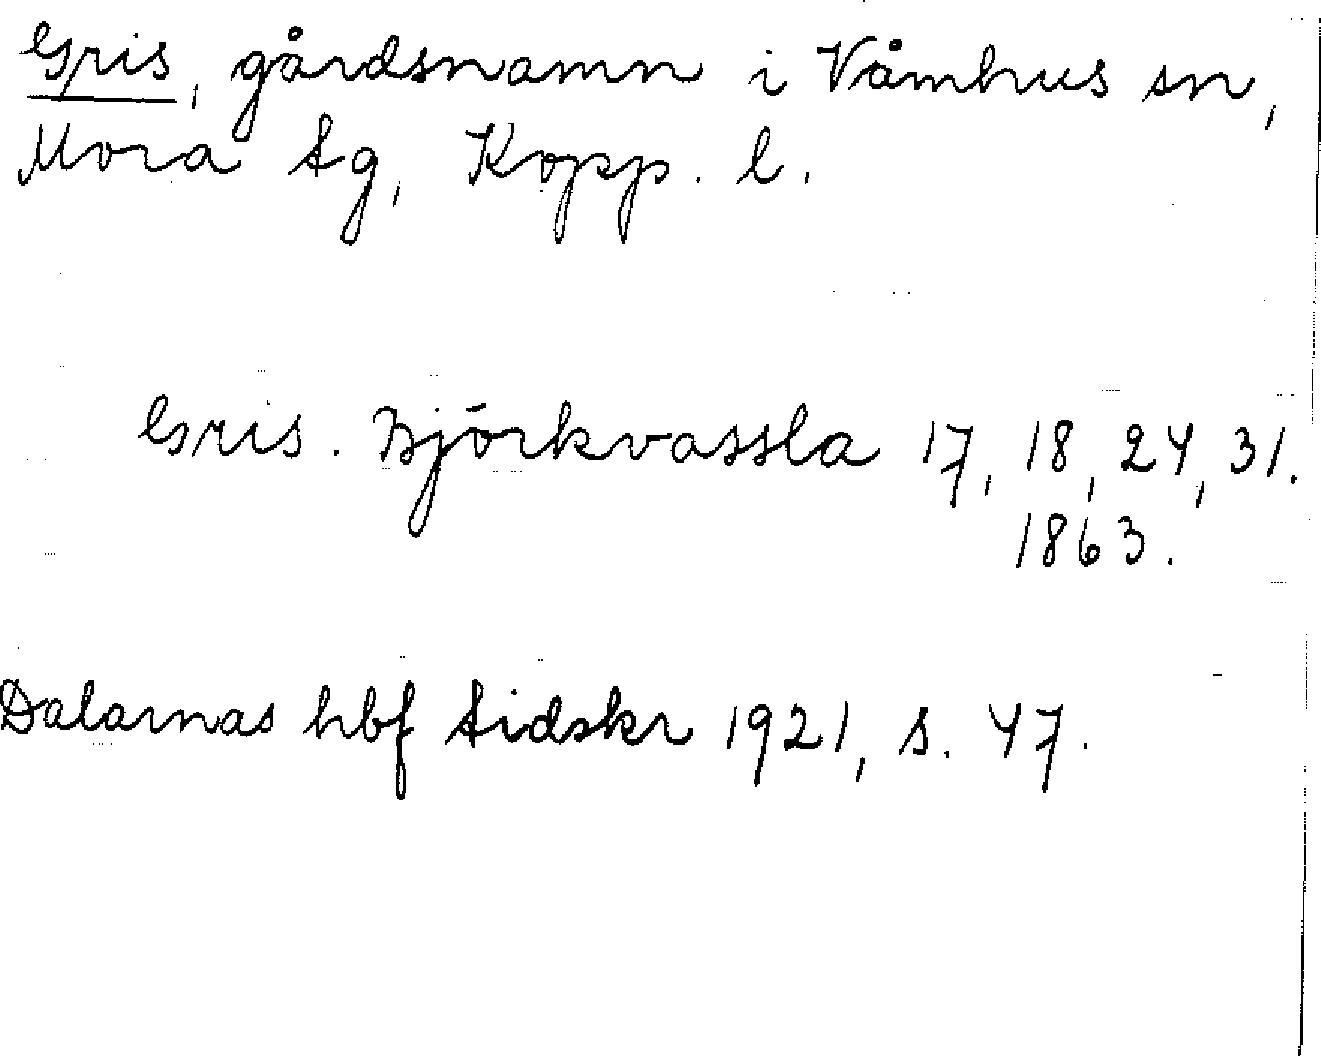 Gris, gårdsnamn i Våmhus sn,
Mora tg, Kopp. l.
Gris. Björkvassla 17, 18, 24, 31.
1863.
Dalarnas hbf tidskr 1921, s. 47.